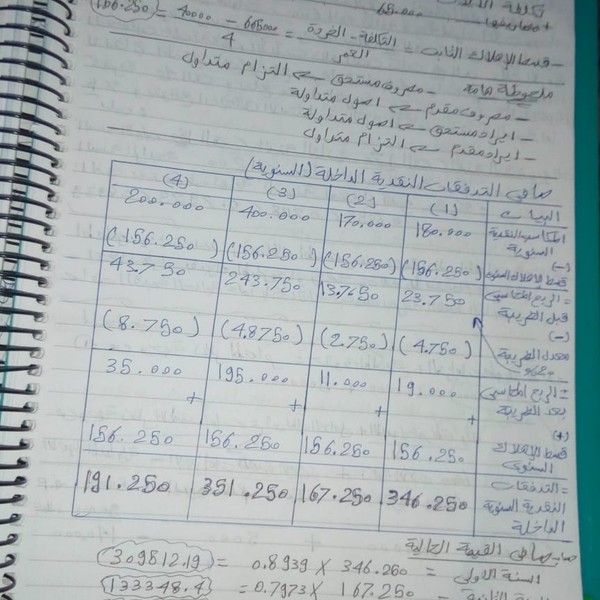 تكلفة
665000
+ مصاريفها
- قسط الإهلاك الثابت = التكلفة - الخردة / العمر = 665000 - 40000 / 4 = (156.250)
ملحوظة هامة - مصروف مستحق ← التزام متداول
- مصروف مقدم ← اصول متداولة
- ايراد مستحق ← اصول متداولة
- ايراد مقدم ← التزام متداول
صافي التدفقات النقدية الداخلة (السنوية)
البيان (1) (2) (3) (4)
المكاسب النقدية السنوية 180.000 170.000 400.000 200.000
(-) قسط الإهلاك السنوي (156.250) (156.250) (156.250) (156.250)
= الربح المحاسبي قبل الضريبة 23.750 13.750 243.750 43.750
(-) معدل الضريبة 20% (4.750) (2.750) (4.8750) (8.750)
= الربح المحاسبي بعد الضريبة 19.000 11.000 195.000 35.000
+ + + +
(+) قسط الإهلاك السنوي 156.250 156.250 156.250 156.250
= التدفقات النقدية السنوية الداخلة 346.250 167.250 351.250 191.250
صافي القيمة الحالية
السنة الأولى = 346.250 × 0.8939 = (309812.19)
السنة الثانية = 167.250 × 0.7973 = (133348.4)